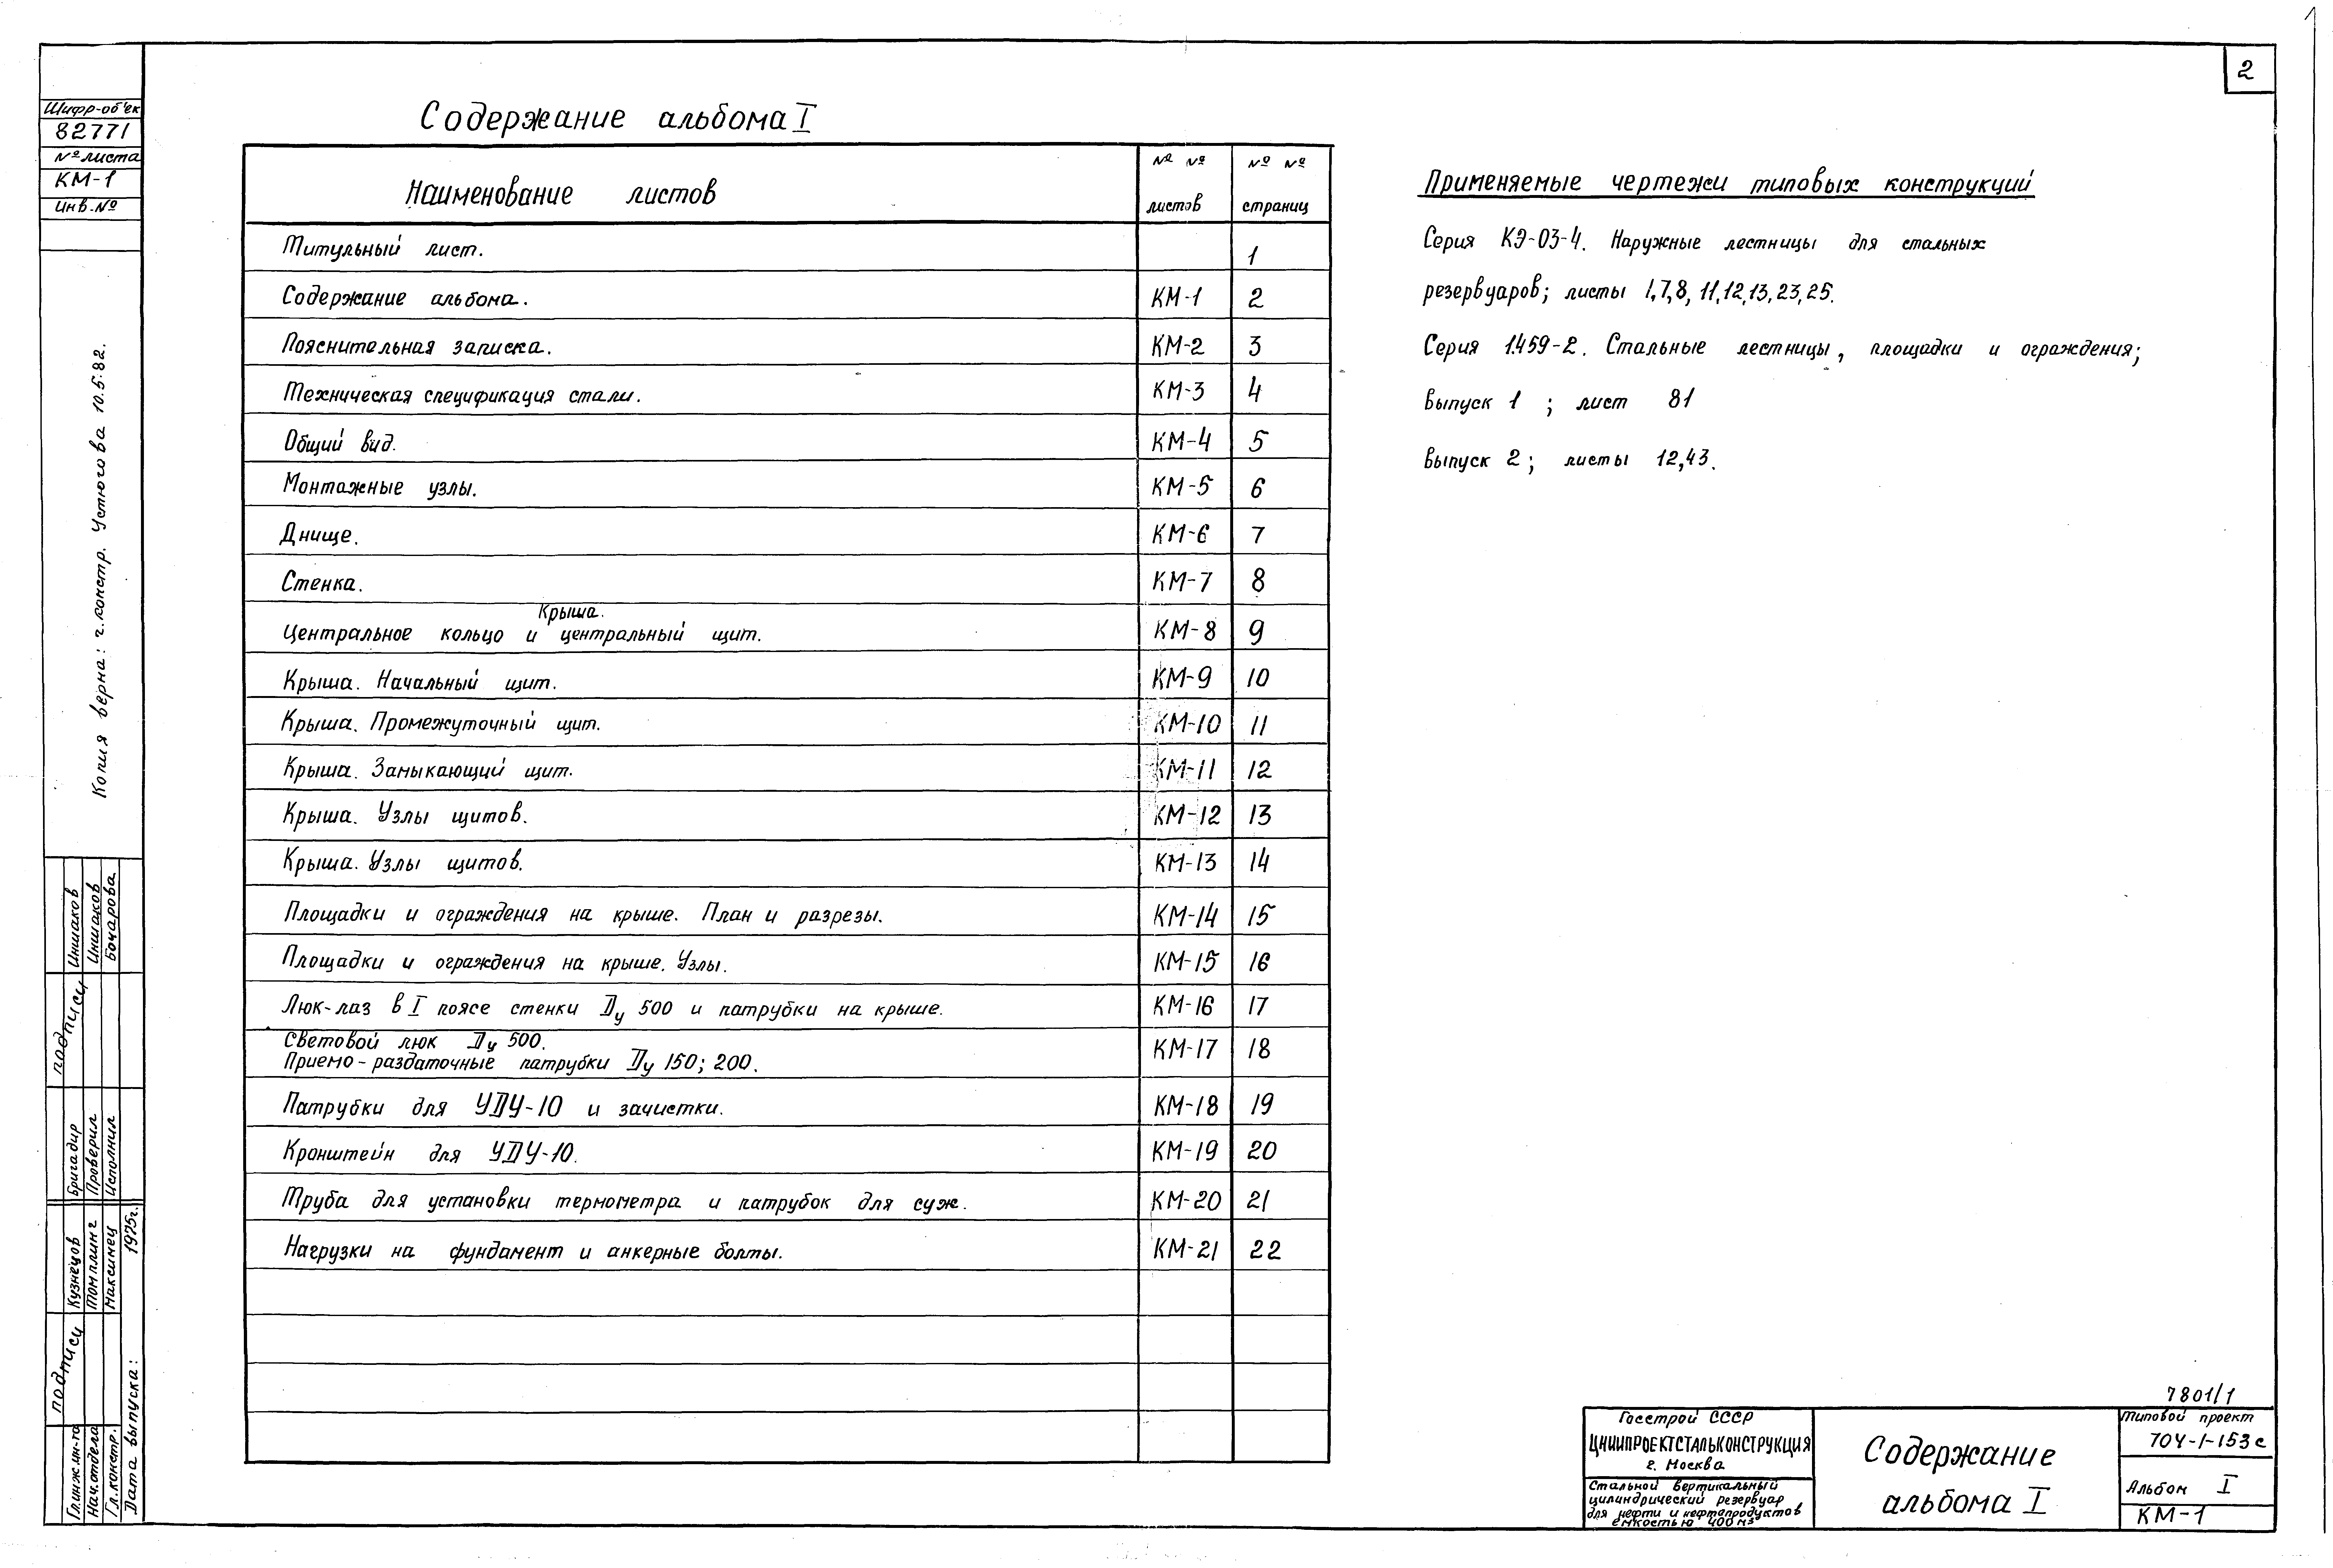 2
Шифр-объек
82771
№ листа
КМ-1
Инв.№
Копия верна: г.констр. Устюгова 10.5.82.
Содержание альбома I
Наименование листов
№ № листов
№ № страниц
Титульный лист. 1
Содержание альбома. КМ-1 2
Пояснительная записка. КМ-2 3
Техническая спецификация стали. КМ-3 4
Общий вид. КМ-4 5
Монтажные узлы. КМ-5 6
Днище. КМ-6 7
Стенка. КМ-7 8
Крыша.
Центральное кольцо и центральный щит. КМ-8 9
Крыша. Начальный щит. КМ-9 10
Крыша. Промежуточный щит. КМ-10 11
Крыша. Замыкающий щит. КМ-11 12
Крыша. Узлы щитов. КМ-12 13
Крыша. Узлы щитов. КМ-13 14
Площадки и ограждения на крыше. План и разрезы. КМ-14 15
Площадки и ограждения на крыше. Узлы. КМ-15 16
Люк-лаз в I поясе стенки Ду 500 и патрубки на крыше. КМ-16 17
Световой люк Ду 500.
Приемо-раздаточные патрубки Ду 150; 200. КМ-17 18
Патрубки для УДУ-10 и зачистки. КМ-18 19
Кронштейн для УДУ-10. КМ-19 20
Труба для установки термометра и патрубок для суж. КМ-20 21
Нагрузки на фундамент и анкерные болты. КМ-21 22
Применяемые чертежи типовых конструкций
Серия КЭ-03-4. Наружные лестницы для стальных
резервуаров; листы 1,7,8, 11,12,13, 23, 25.
Серия 1.459-2. Стальные лестницы, площадки и ограждения;
выпуск 1 ; лист 81
выпуск 2; листы 12,43.
Бригадир подписи Иншаков
Проверил Иншаков
Исполнил Бочарова
Гл.инж.ин-та подписи Кузнецов
Нач.отдела Томплинг
Гл.констр. Максимец
Дата выпуска: 1975г.
7801/1
Госстрой СССР
ЦНИИПРОЕКТСТАЛЬКОНСТРУКЦИЯ
г. Москва
Стальной вертикальный
цилиндрический резервуар
для нефти и нефтепродуктов
емкостью 400 м³
Содержание
альбома I
Типовой проект
704-1-153с
Альбом I
КМ-1